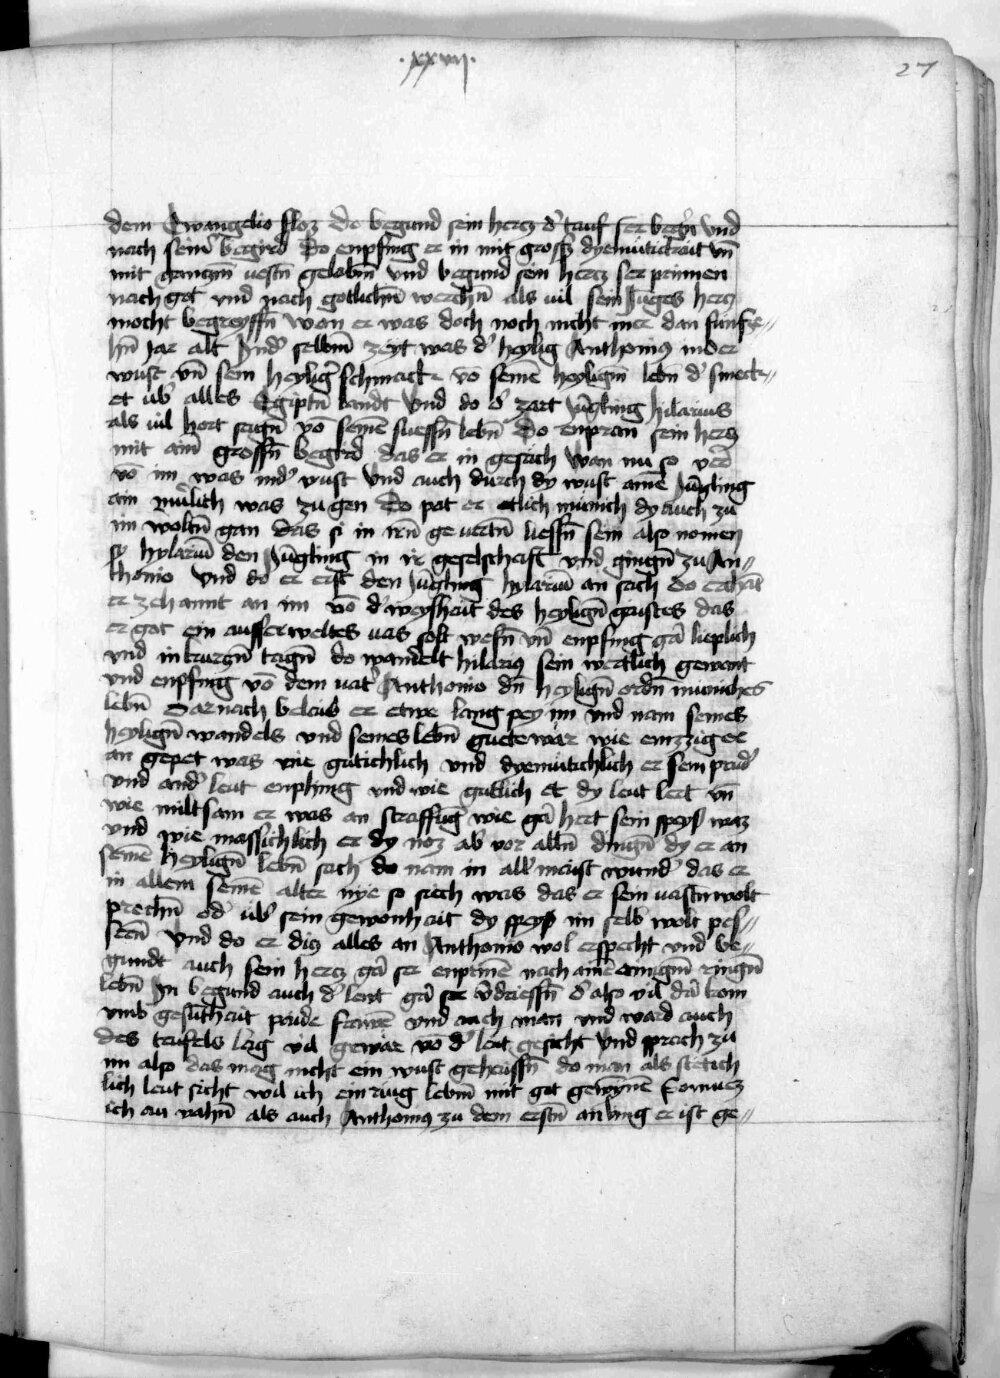 .xxvij.
27
dem Ewangelio floz Do begund sein hercz d' tauf ser begern Und
nach seinr begird Do enpfing er in mit grosser dyemutickait vn̄
mit ganczm̄ vestn̄ gelabm̄ Und begund sein hercz ser prinnen
nach got vnd nach gotlichn̄ werchn̄ als vil sein Jūges hercz
mocht begreyffn̄ Wan er was doch noch nicht mer dan funfze〃
hn̄ jar alt Jnd' selbm̄ zeyt was d' heylig Anthonius in der
wust vn̄ sein heylig' schmack vō seinē heyligm̄ lebn̄ d' smeck〃
et vb' alles Egiptn̄ landt Und do d' zart Jūgling hilarius
als vil hort sagn̄ vō seinē suessn̄ lebn̄ Do enpran sein hercz
mit aim̄ grossn̄ begird das er in gesach Wan nu so verr
vō im was ind' wust Und auch durch dy wust ainē Jūgling
ain mülich was zu gen Do pat er etlich münich dy auch zu
im woltn̄ gan das si in irn̄ gevertn̄ liessn̄ sein also nomen
sy hylariū den Jūgling in ir geselschaft vnd gingn̄ zu An〃
thonio Und do er erst den Jūgling hylariū an sach do
er zehannt an im vō d' weysshait des heylign̄ gaistes das
er got ein ausserweltes vas solt wesn̄ vn̄ enpfing gā lieplich
vnd in kurczn̄ tagn̄ do wandelt hilarius sein wertlich gewant
vnd enpfing vō dem vat' Anthonio dn̄ heylign̄ ordn̄ münches
lebn̄ Darnach belaib er etwe lang pey im vnd nam seines
heylign̄ wandels vnd seines lebn̄ guete war wie emzziger
an gepet was wie gutichlich vnd dyemutichlich er sein prud'
vnd and' leut enphing vnd wie gutlich et dy leut lert vn̄
wie miltsam er was an straffūg wie gā hert sein speys waz
vnd wie massichlich er dy noz ab' vor alln̄ dingn̄ dy er an
seinē heylign̄ lebn̄ sach do nam in all' maist wund' das er
in allem seinē alter nye so siech was das er sein vastn wolt
prechn̄ od' vb' sein gewonhait dy speys im selb' wolt pes〃
sern̄ Und do er dicz alles an Anthonio wol erspecht vnd be〃
gundt auch sein hercz gā ser enprinē nach ainē ainigm̄ ringn̄
lebn̄ Jn begund auch d' leut gā ser v'driessn̄ d' also vil dā kom
vmb gesuntheit paide frawē vnd auch man vnd ward auch
des teufels laig vil gewar vō d' leut gesicht Und sprach zu
im also das mag nicht ein wust gehaissn̄ do man als stetich
lich leut sicht wil ich ein ring lebm̄ mit got gewynnē So muez
ich an vahn̄ als auch Anthonius zu dem erstn̄ an ving er ist ge〃